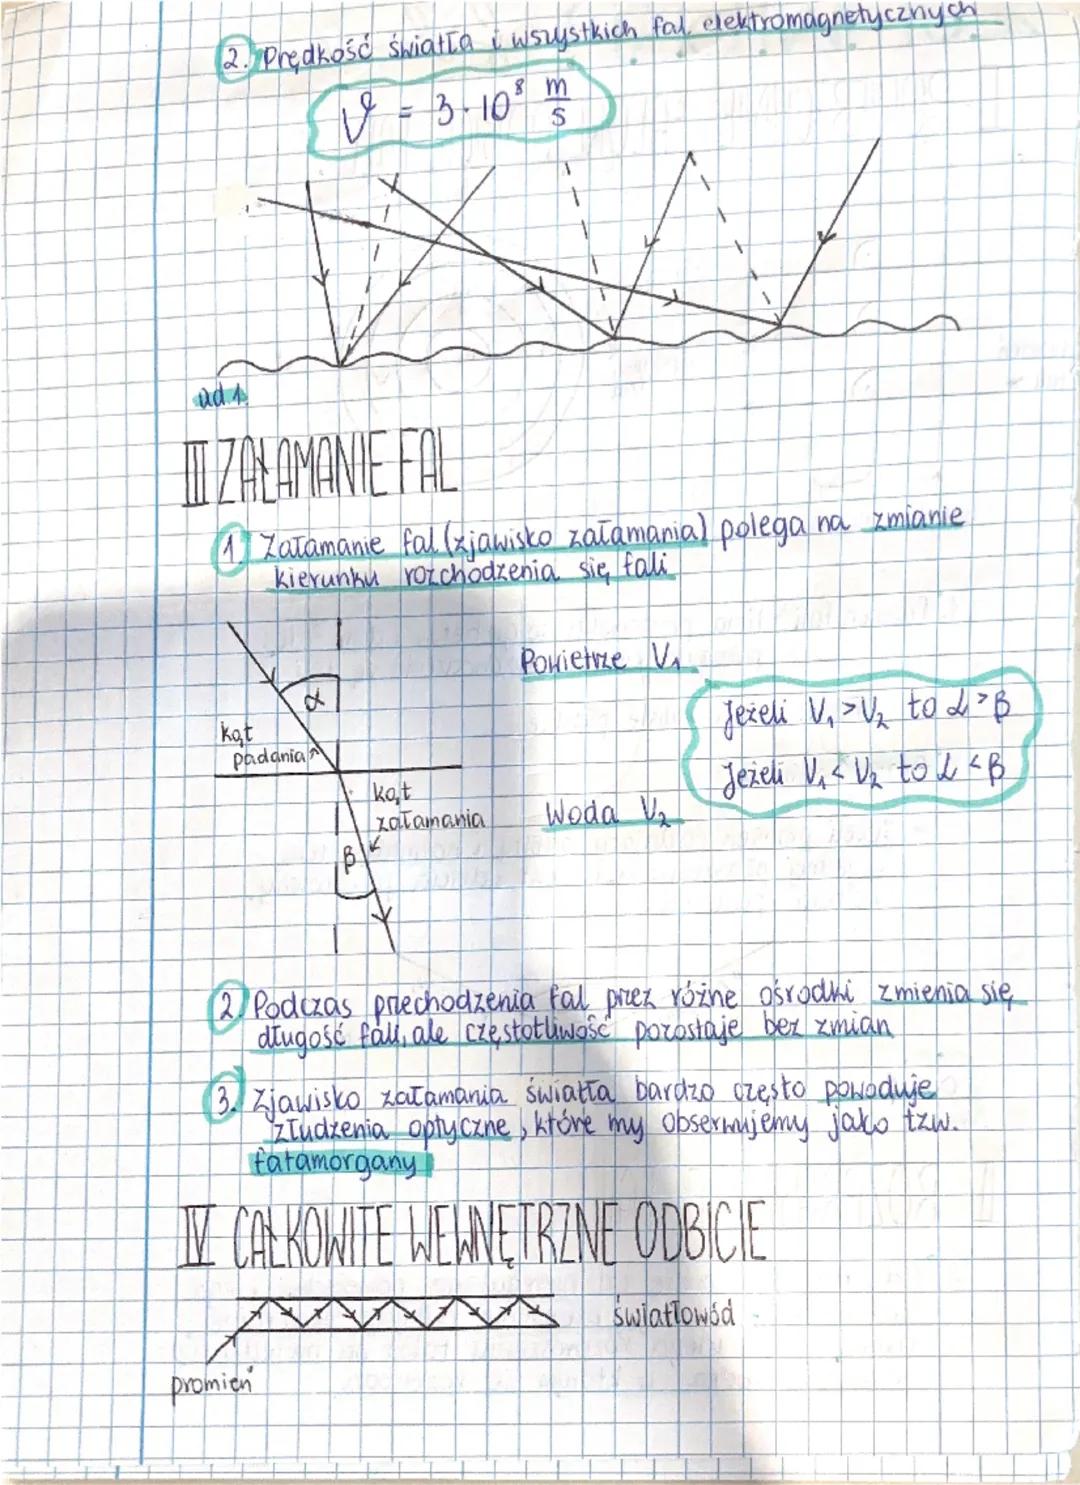 2. Prędkość światła i wszystkich fal elektromagnetycznych
ϑ = 3·10⁸ m/s
ad 1.
III ZAŁAMANIE FAL
1. Załamanie fal (zjawisko załamania) polega na zmianie
kierunku rozchodzenia się fali
Powietrze V₁
α
Jeżeli V₁ > V₂ to α > β
kąt
padania
Jeżeli V₁ < V₂ to α < β
kąt
załamania
Woda V₂
β
2. Podczas przechodzenia fal przez różne ośrodki zmienia się
długość fali, ale częstotliwość pozostaje bez zmian
3. Zjawisko załamania światła bardzo często powoduje
złudzenia optyczne, które my obserwujemy jako tzw.
fatamorgany
IV CAŁKOWITE WEWNĘTRZNE ODBICIE
światłowód
promień